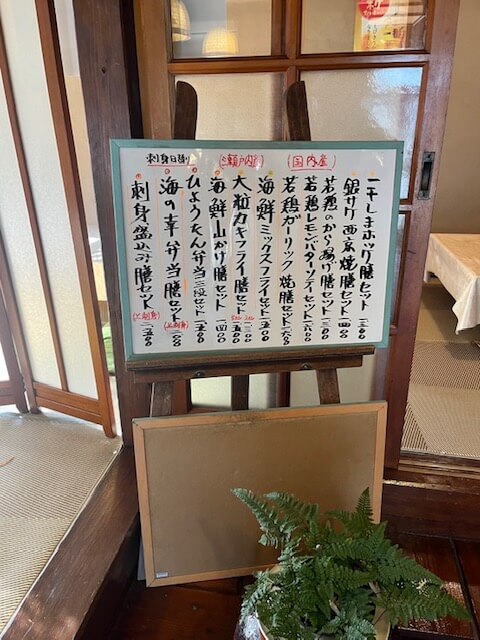 国内産
瀬戸内産
刺身日替り
一干しまホッケ膳セット 一三〇〇
銀サケ西京焼膳セット 一四〇〇
若鶏のから揚げ膳セット 一三〇〇
若鶏レモンバターソテーセット 一六〇〇
若鶏ガーリック焼膳セット 一六〇〇
海鮮ミックスフライセット 一五〇〇
大粒カキフライ膳セット
一三〇〇
一五〇〇
海鮮山かけ膳セット 一四〇〇
ひょうたん弁当三段セット 一五〇〇
海の幸弁当膳セット (上刺身)
刺身盛込み膳セット (上刺身) 二五〇〇